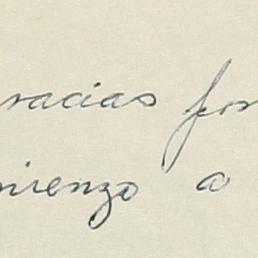 racias por
mienzo a